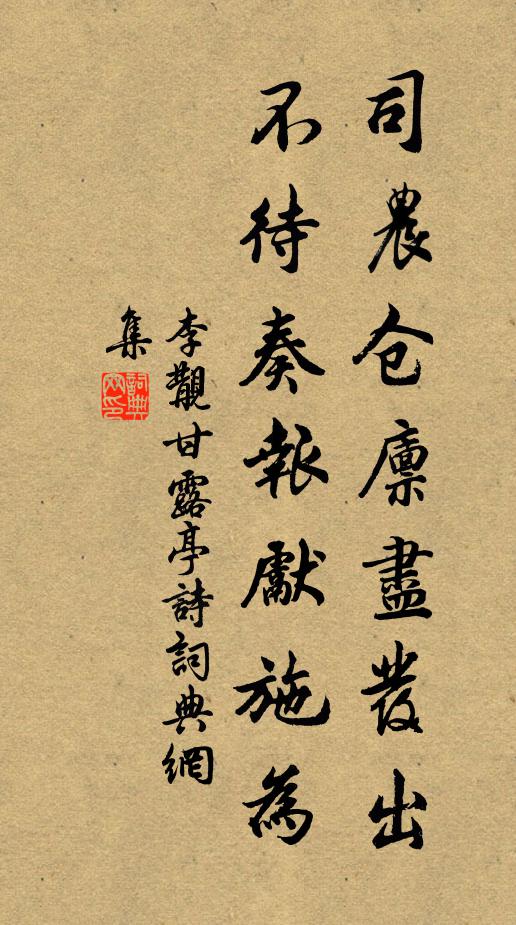 司農仓廪盡發出
不待奏報獻施為
李覯甘露亭詩詞典網
集
詞典网印